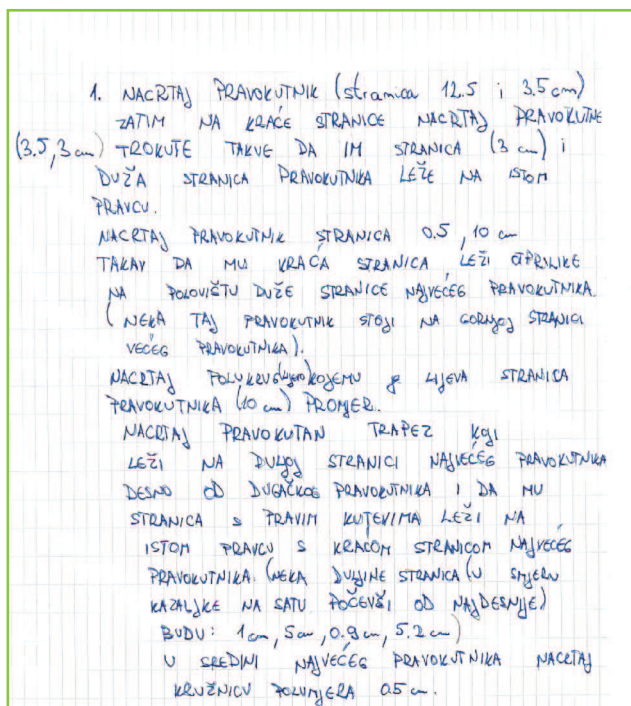 1. NACRTAJ PRAVOKUTNIK (stramica 12.5 i 3.5 cm)
ZATIM NA KRAĆE STRANICE NACRTAJ PRAVOKUTNE
(3.5, 3 cm) TROKUTE TAKVE DA IM STRANICA (3 cm) i
DUŽA STRANICA PRAVOKUTNIKA LEŽE NA ISTOM
PRAVCU.
NACRTAJ PRAVOKUTNIK STRANICA 0.5, 10 cm
TAKAV DA MU KRAĆA STRANICA LEŽI OTPRILIKE
NA POLOVIŠTU DUŽE STRANICE NAJVEĆEG PRAVOKUTNIKA.
(NEKA TAJ PRAVOKUTNIK STOJI NA GORNJOJ STRANICI
VEĆEG PRAVOKUTNIKA).
NACRTAJ POLUKRUG (lijevo) KOJEMU je LIJEVA STRANICA
PRAVOKUTNIKA (10 cm) PROMJER.
NACRTAJ PRAVOKUTAN TRAPEZ KOJI
LEŽI NA DULJOJ STRANICI NAJVEĆEG PRAVOKUTNIKA
DESNO OD DUGAČKOG PRAVOKUTNIKA I DA MU
STRANICA S PRAVIM KUTEVIMA LEŽI NA
ISTOM PRAVCU S KRAĆOM STRANICOM NAJVEĆEG
PRAVOKUTNIKA. (NEKA DULJINE STRANICA (U SMJERU
KAZALJKE NA SATU POČEVŠI OD NAJDESNIJE)
BUDU: 1 cm, 5 cm, 0.9 cm, 5.2 cm)
U SREDINI NAJVEĆEG PRAVOKUTNIKA NACRTAJ
KRUŽNICU POLUMJERA 0.5 cm.